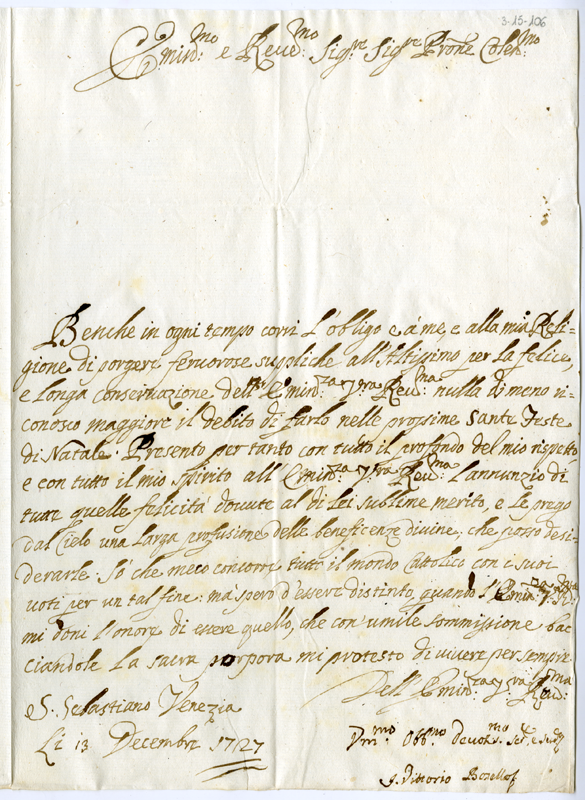 3-15-106
Emin:mo e Reue:mo Sig:re Sig:re Prone Colen:mo
Benche in ogni tempo corri l'obligo e à me, e alla mia Reli-
gione di porgere feruorose suppliche all'Altissimo per la felice,
e longa conseruazione dell' Emin:za vra Reu:ma nulla di meno ri-
conosco maggiore il debito di farlo nelle prossime sante feste
di Natale. Presento per tanto con tutto il profondo del mio rispetto
e con tutto il mio spirito all' Emin:za vra Reu:ma l'annunzio di
tutte quelle felicità douute al di lei sublime merito, e le prego
dal Cielo una larga profusione delle beneficenze diuine, che posso desi-
derarle. Sò che meco concorre tutto il mondo Cattolico con i suoi
uoti per un tal fine: mà spero d'essere distinto, quando l'Emin:za
mi doni l'onore di essere quello, che con umile sommissione bac-
ciandole la sacra porpora mi protesto di uiuere per sempre
Dell' Emin:za vra Reu:ma
S. Sebastiano Venezia
Li 13 Decembre 1727
Vm:mo Obb:mo Deuot:mo
Vittorio